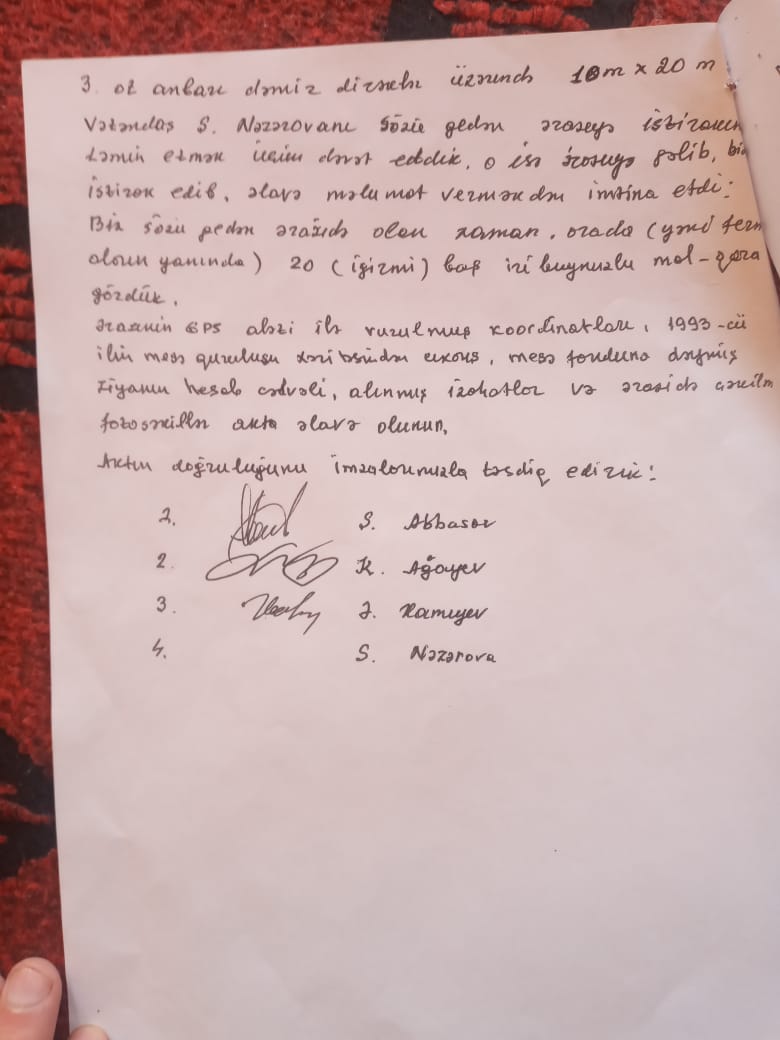 3. ot anbarı dəmir dirəklər üzərində 10 m x 20 m
Vətəndaş S. Nəzərovanı sözü gedən əraziyə iştirakını
təmin etmək üçün dəvət etdik, o isə əraziyə gəlib,
iştirak edib, əlavə məlumat verməkdən imtina etdi:
Biz sözü gedən ərazidə olan zaman, orada (yəni ferm
olanın yanında) 20 (igirmi) baş iri buynuzlu mal-qara
gözdük.
ərazinin GPS aləti ilə vurulmuş koordinatları, 1993-cü
ilin meşə quruluşu xəritəsindən çıxarış, meşə fonduna dəymiş
ziyanın hesab cədvəli, alınmış izahatlar və ərazidə çəkilm
fotoşəkillər akta əlavə olunur.
Aktın doğruluğunu imzalarımızla təsdiq edirik:
1. S. Abbasov
2. K. Ağayev
3. Kamıyev
4. S. Nəzərova